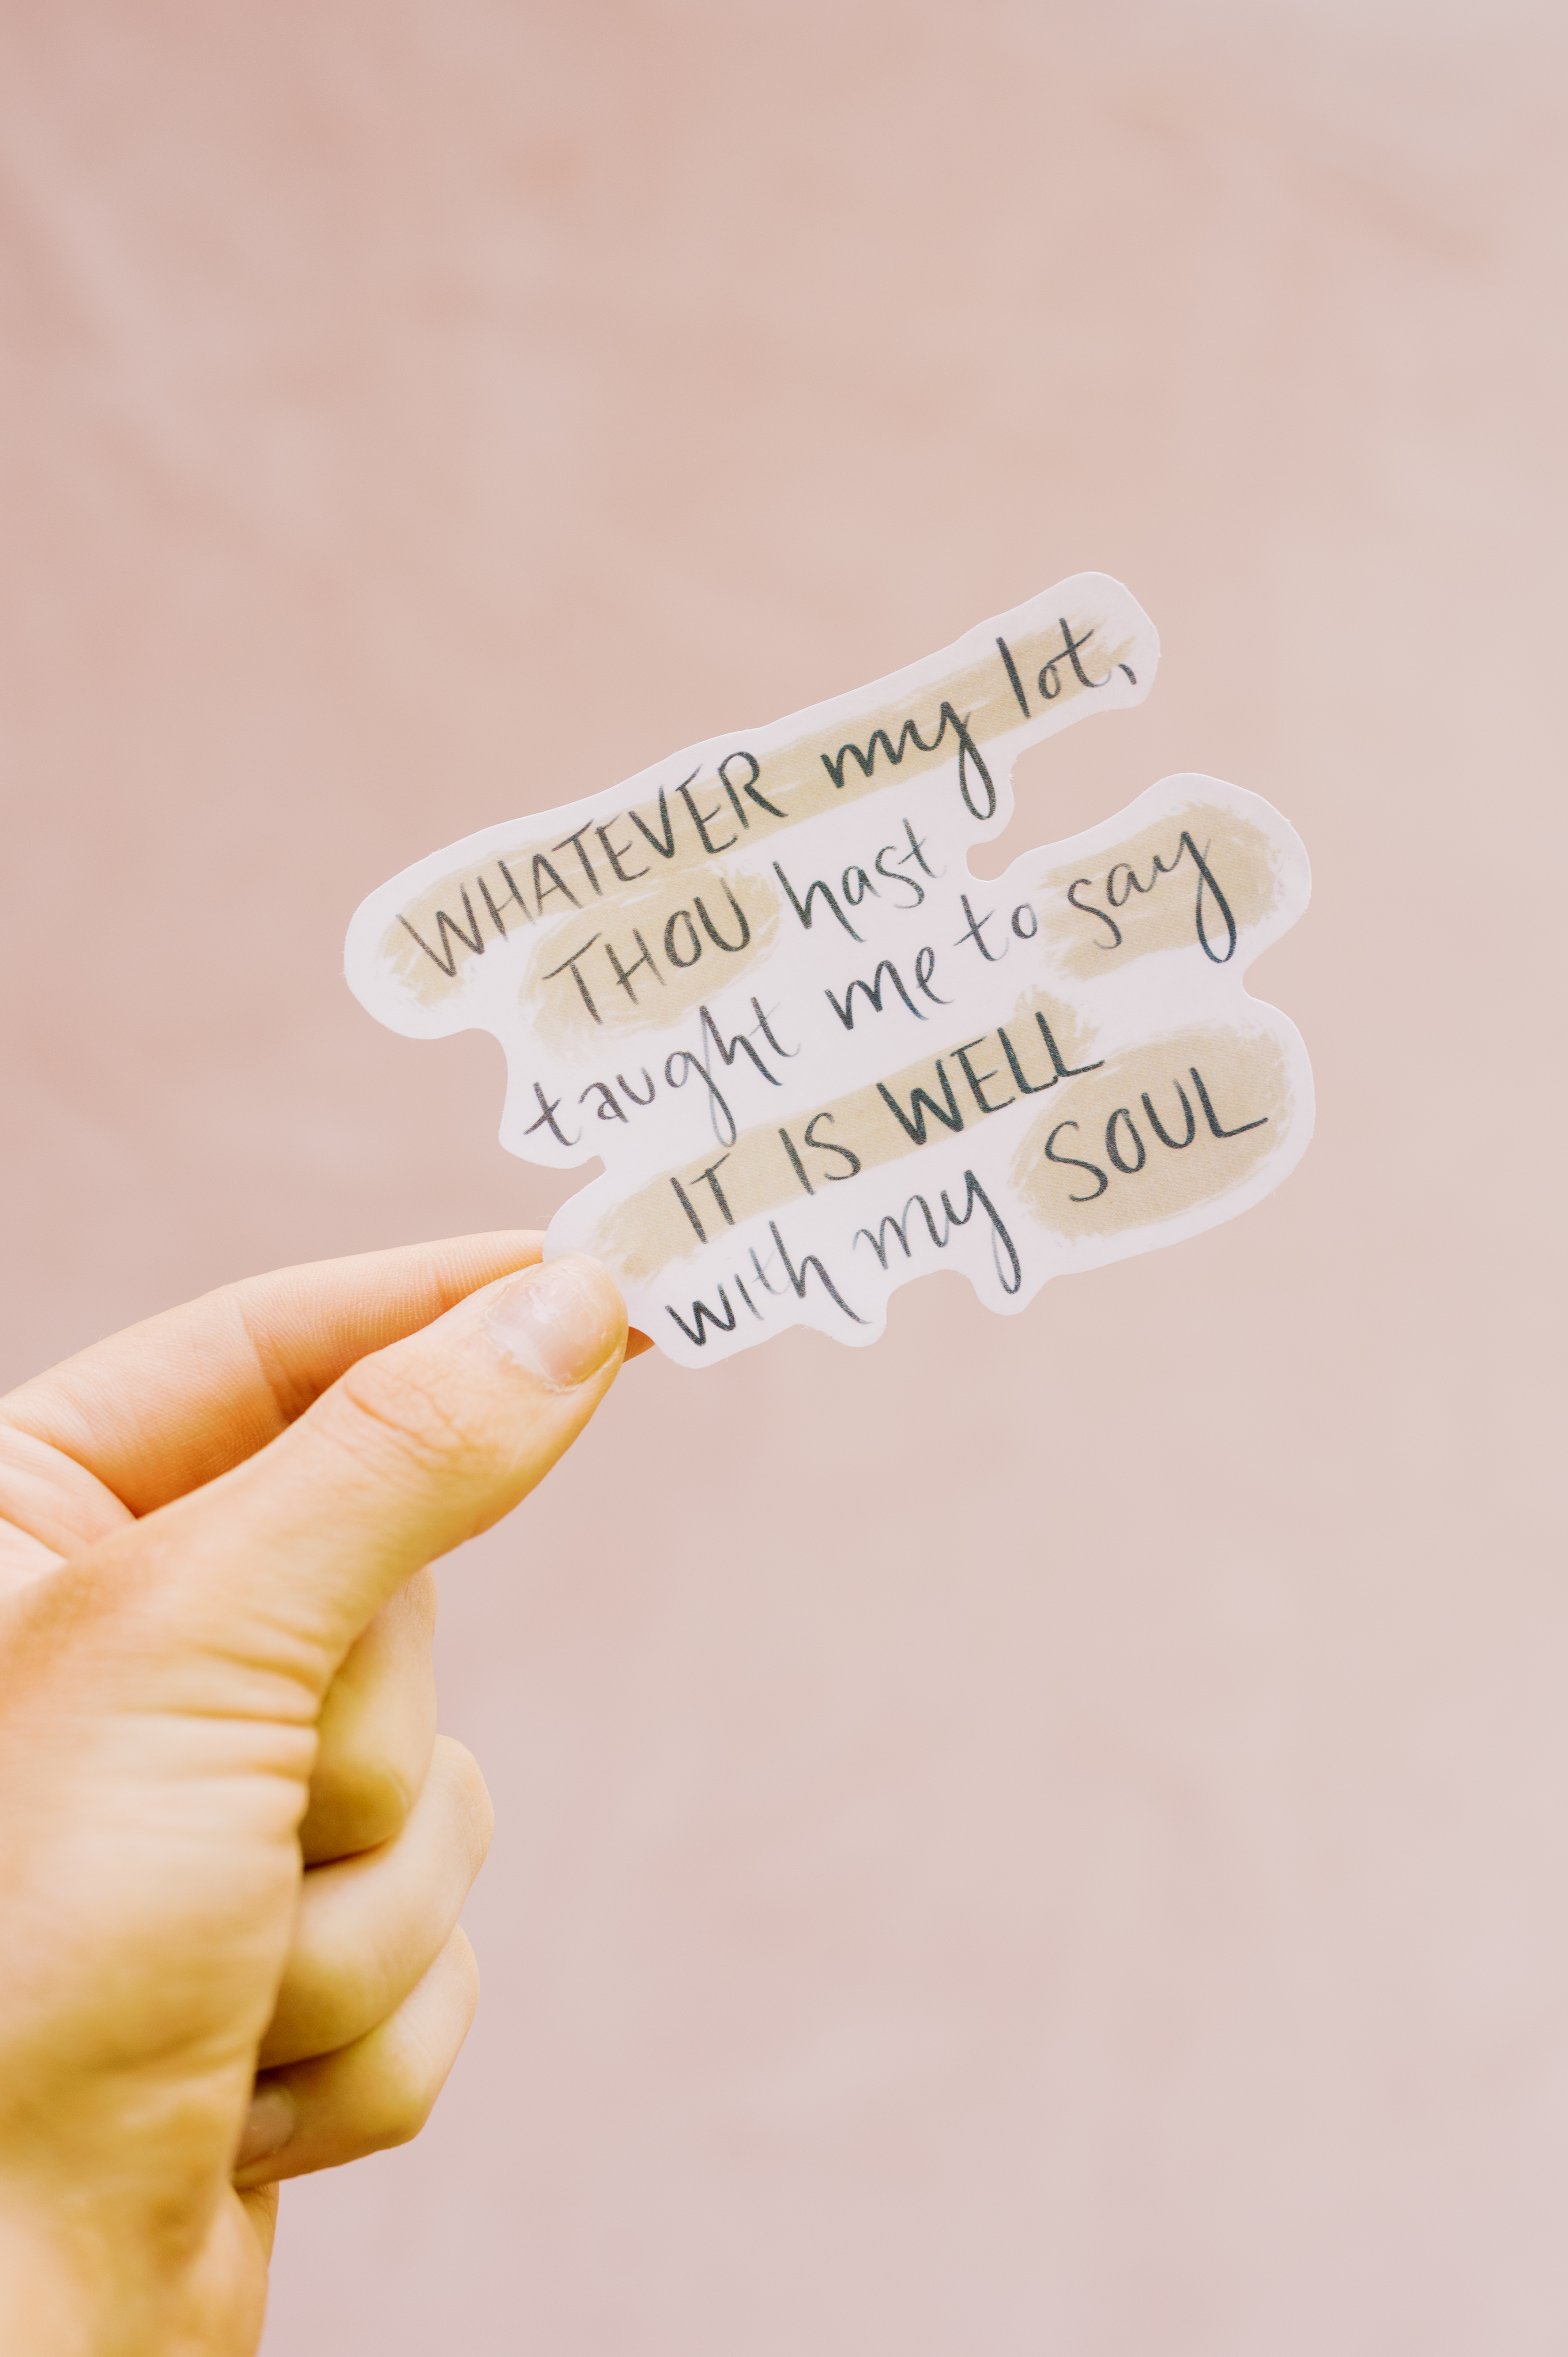 WHATEVER my lot,
THOU hast
taught me to say
IT IS WELL
with my SOUL